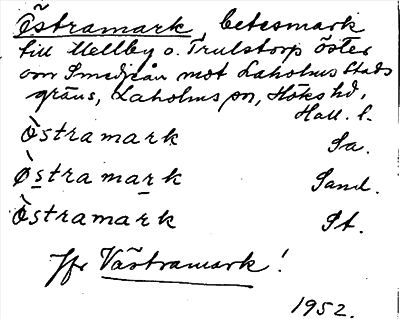 Östramark betesmark
till Mellby o. Trulstorp öster
om Smedjeån mot Laholms Stads
gräns, Laholms sn, Höks hd,
Hall. l.
Östramark Sa.
Östramark Sand.
Östramark St.
Jfr Västramark!
1952.